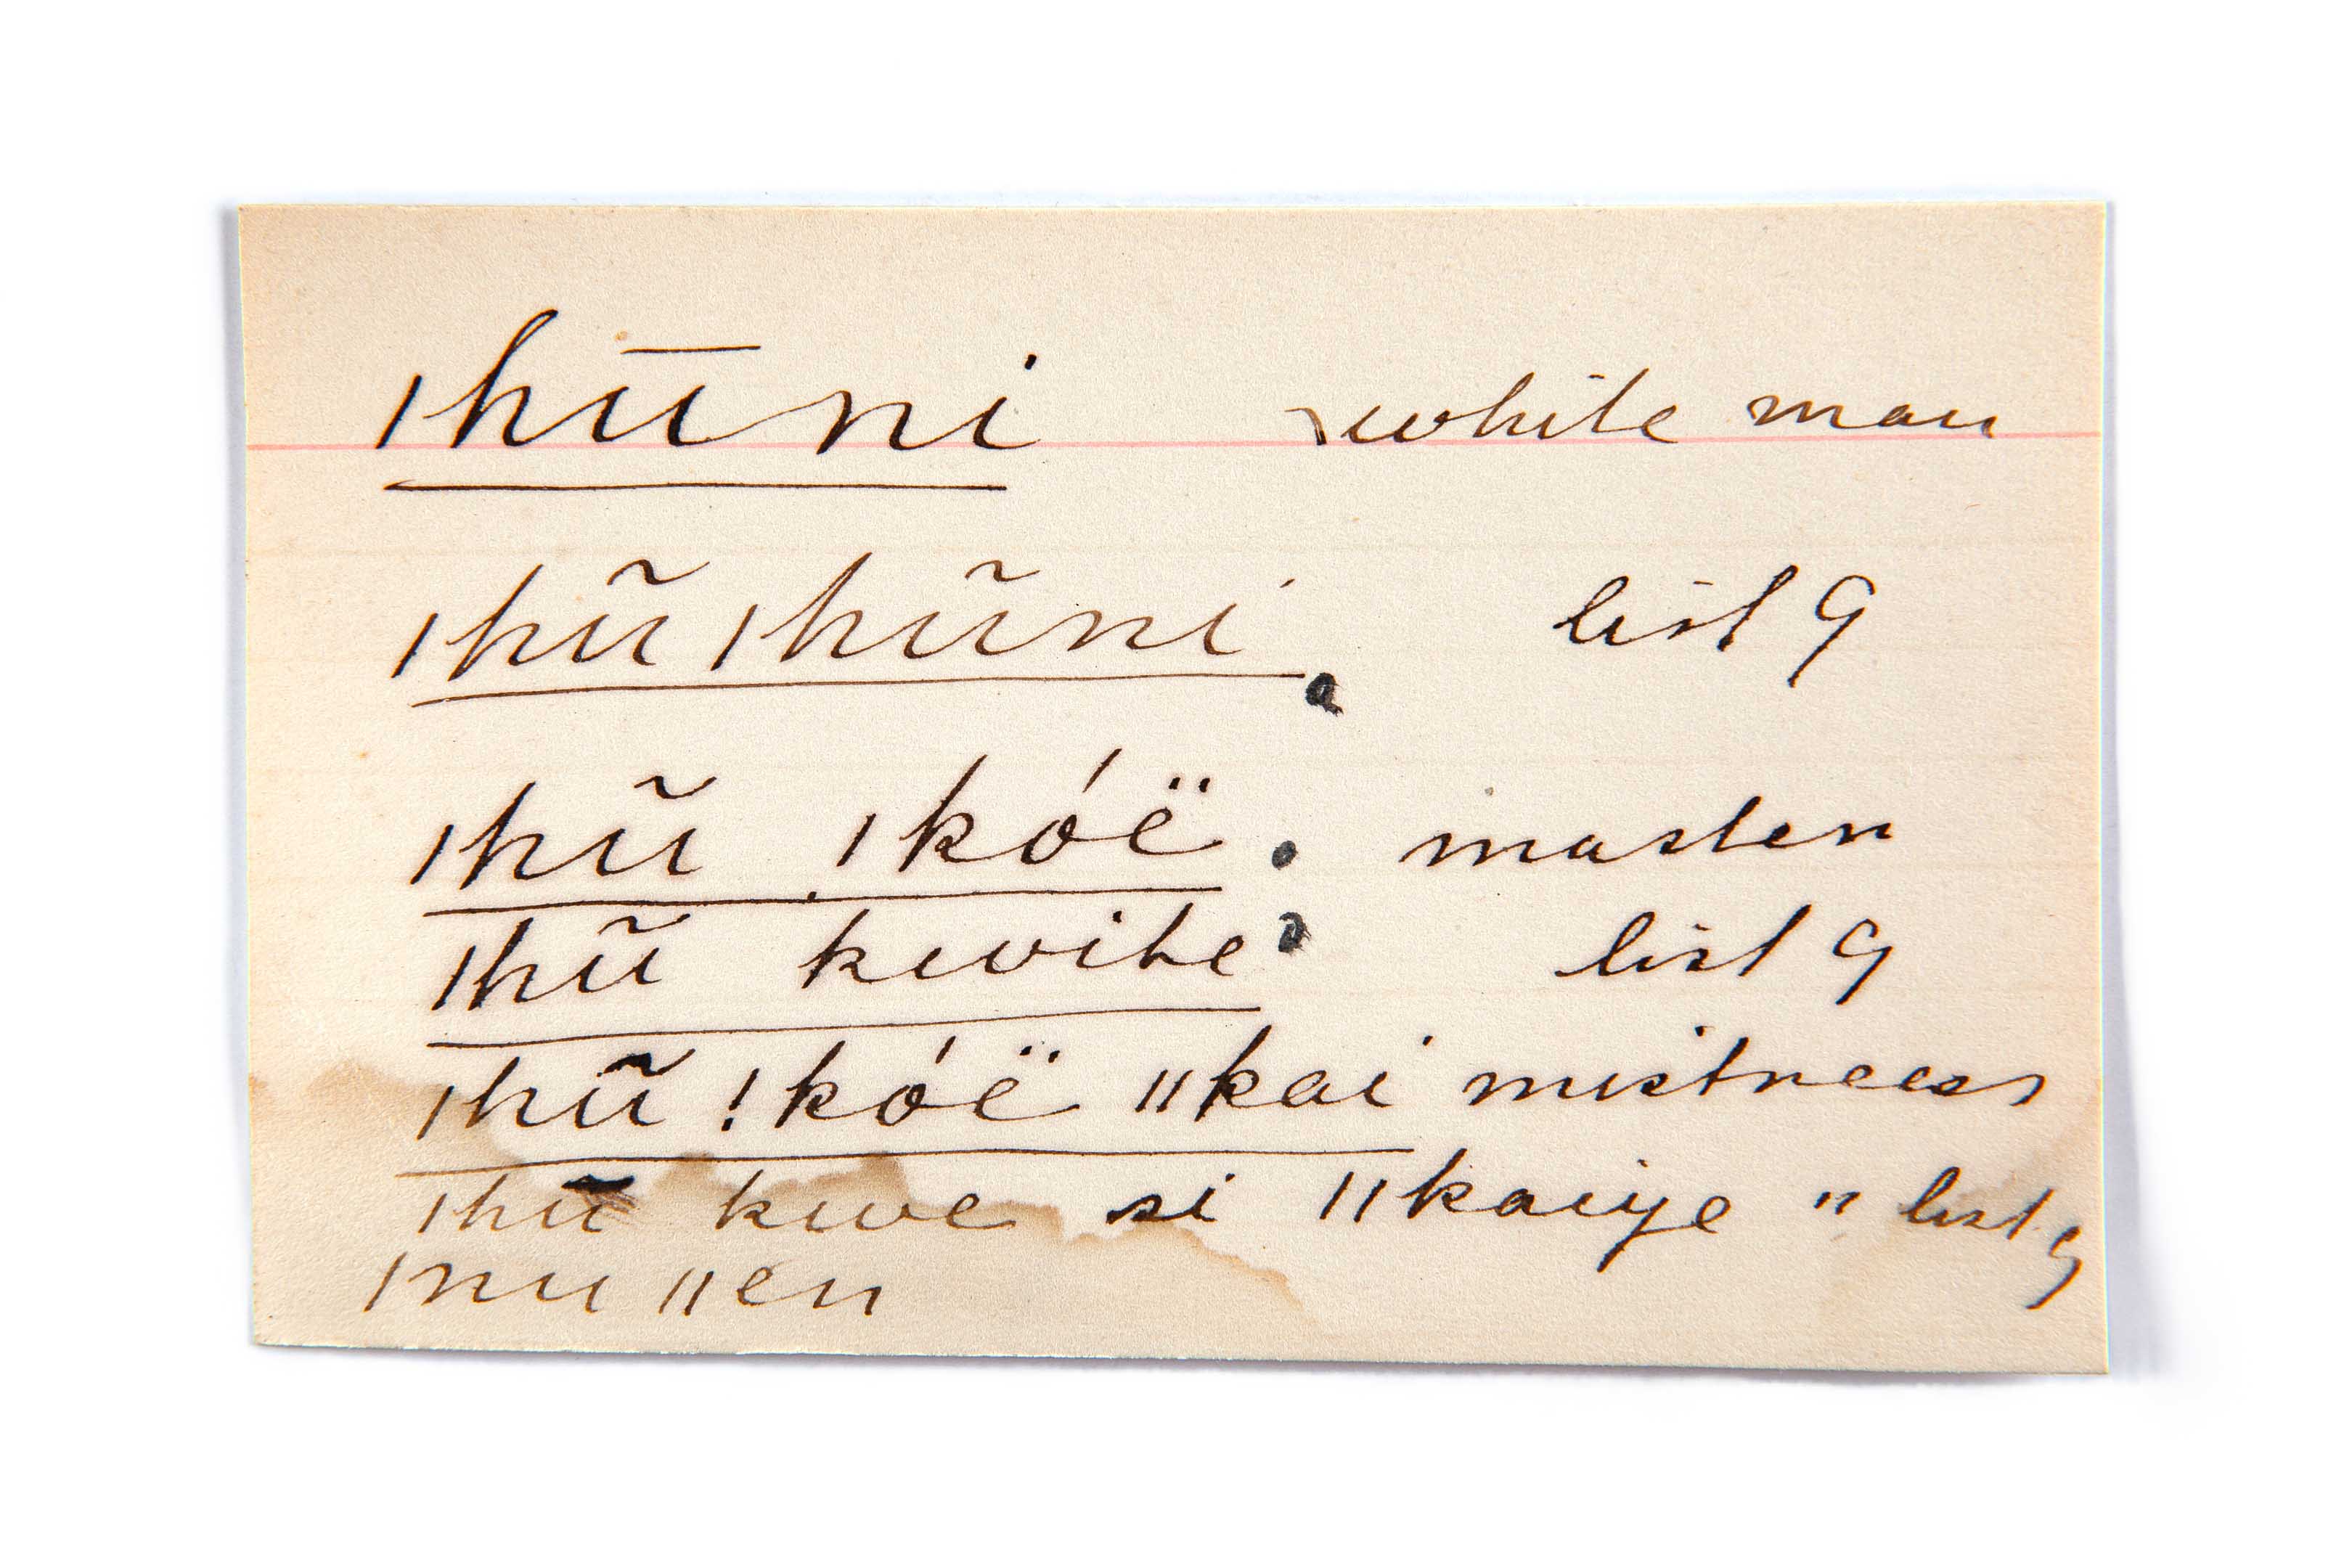 ǀhūni white man
ǀhũ ǀhũni list 9
ǀhũ ǀkóë master
ǀhũ kwihe list 9
ǀhũ !kóë ǁkai mistress
ǀhū kwe si ǁkaiye " list 9
ǀnu ǁen